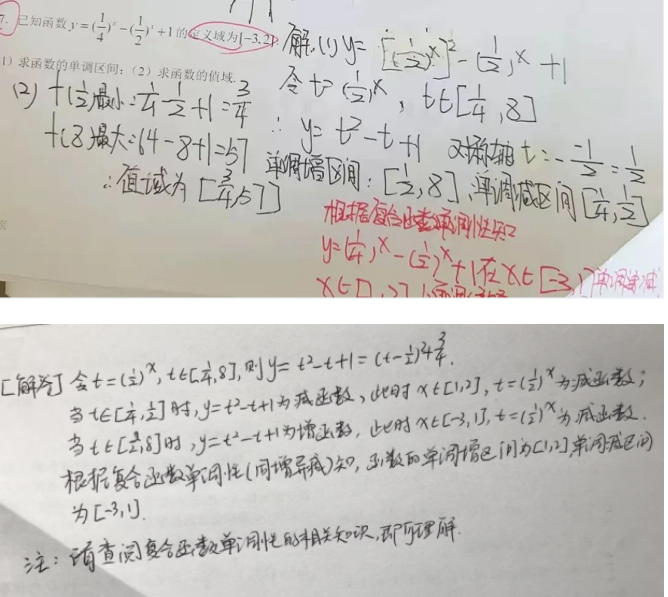 7. 已知函数 y=(1/4)^x-(1/2)^x+1 的定义域为[-3,2].
1）求函数的单调区间；（2）求函数的值域.
解(1) y=[(1/2)^x]^2-(1/2)^x+1
令t=(1/2)^x, t∈[1/4,8]
∴ y=t^2-t+1 对称轴t=-(-1/2)=1/2
单调增区间:[1/2,8],单调减区间[1/4,1/2]
(2) f(1/2)最小=1/4-1/2+1=3/4
f(8)最大=64-8+1=57
∴值域为[3/4,57]
根据复合函数单调性
y=(1/4)^x-(1/2)^x+1在x∈[-3,1]单调递减
[解答] 令t=(1/2)^x, t∈[1/4,8],则y=t^2-t+1=(t-1/2)^2+3/4.
当t∈[1/4,1/2]时,y=t^2-t+1为减函数,此时x∈[1,2],t=(1/2)^x为减函数;
当t∈[1/2,8]时,y=t^2-t+1为增函数,此时x∈[-3,1],t=(1/2)^x为减函数.
根据复合函数单调性(同增异减)知,函数的单调增区间为[1,2],单调减区间
为[-3,1].
注:请查阅复合函数单调性的相关知识,即可理解.